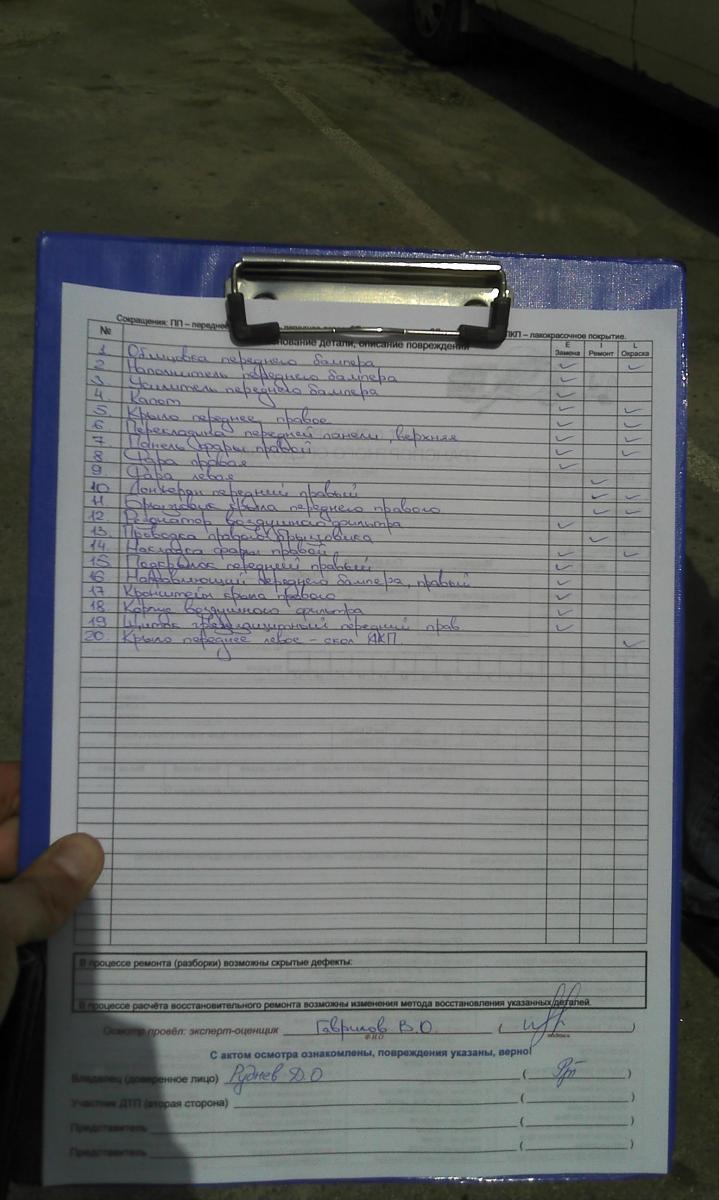 Сокращения: ПП – передне ЛКП – лакокрасочное покрытие.
№ нование детали, описание повреждений E Замена I Ремонт L Окраска
1 Облицовка переднего бампера
2 Наполнитель переднего бампера
3 Усилитель переднего бампера
4 Капот
5. Крыло переднее правое
6. Перекладина передней панели, верхняя
7. Панель фары правой
8 Фара правая
9 Фара левая
10 Лонжерон передний правый
11 Брызговик крыла переднего правого
12. Резонатор воздушного фильтра
13. Проводка правого брызговика
14. Накладка фары правой
15. Подкрылок передний правый
16 Направляющий переднего бампера, правый
17 Кронштейн крыла правого
18 Корпус воздушного фильтра
19 Щиток грязезащитный передний прав
20. Крыло переднее левое – скол ЛКП.
В процессе ремонта (разборки) возможны скрытые дефекты:
В процессе расчёта восстановительного ремонта возможны изменения метода восстановления указанных деталей.
Осмотр провёл: эксперт-оценщик Гаврилов В.О. ( )
Ф.И.О подпись
С актом осмотра ознакомлены, повреждения указаны, верно!
Владелец (доверенное лицо) Руднев Д.О ( )
Участник ДТП (вторая сторона) ( )
Представитель ( )
Представитель ( )